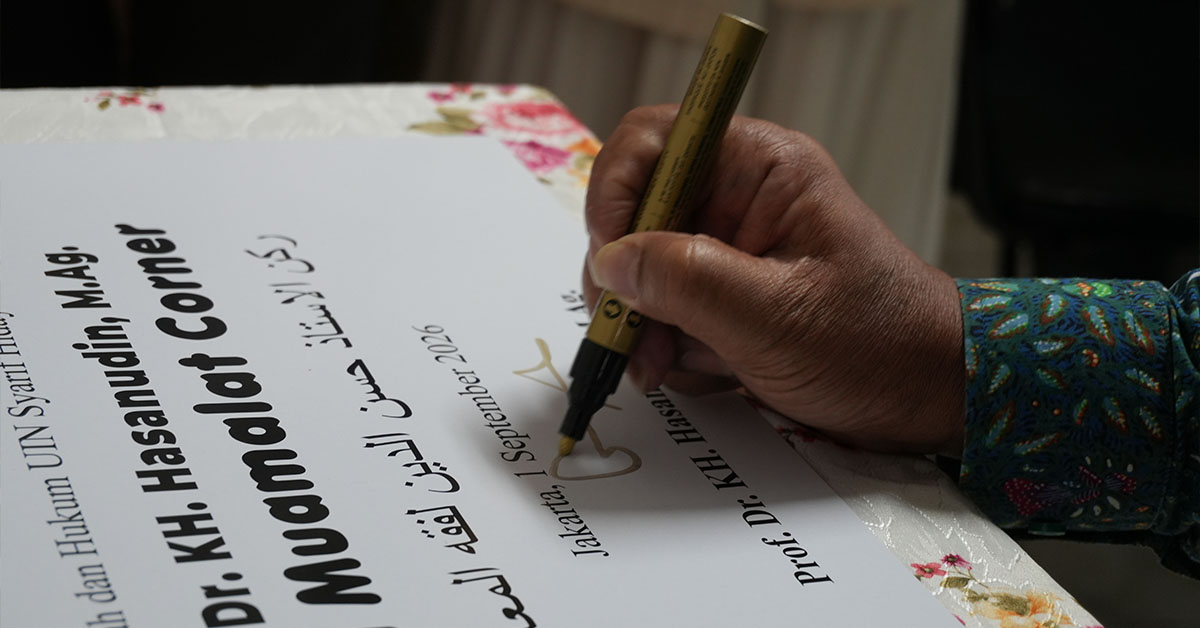 dan Hukum UIN Syarif Hiday
Dr. KH. Hasanudin, M.Ag.
Muamalat Corner
ركن الاستاذ حسن الدين لفقه المع
Jakarta, 1 September 2026
Prof. Dr. KH. Hasan